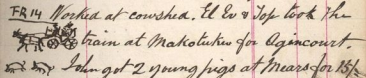 FR 14 Worked at cowshed. El Ev & Top took the
train at Makotuku for Agincourt.
John got 2 young pigs at Mears for 15/-